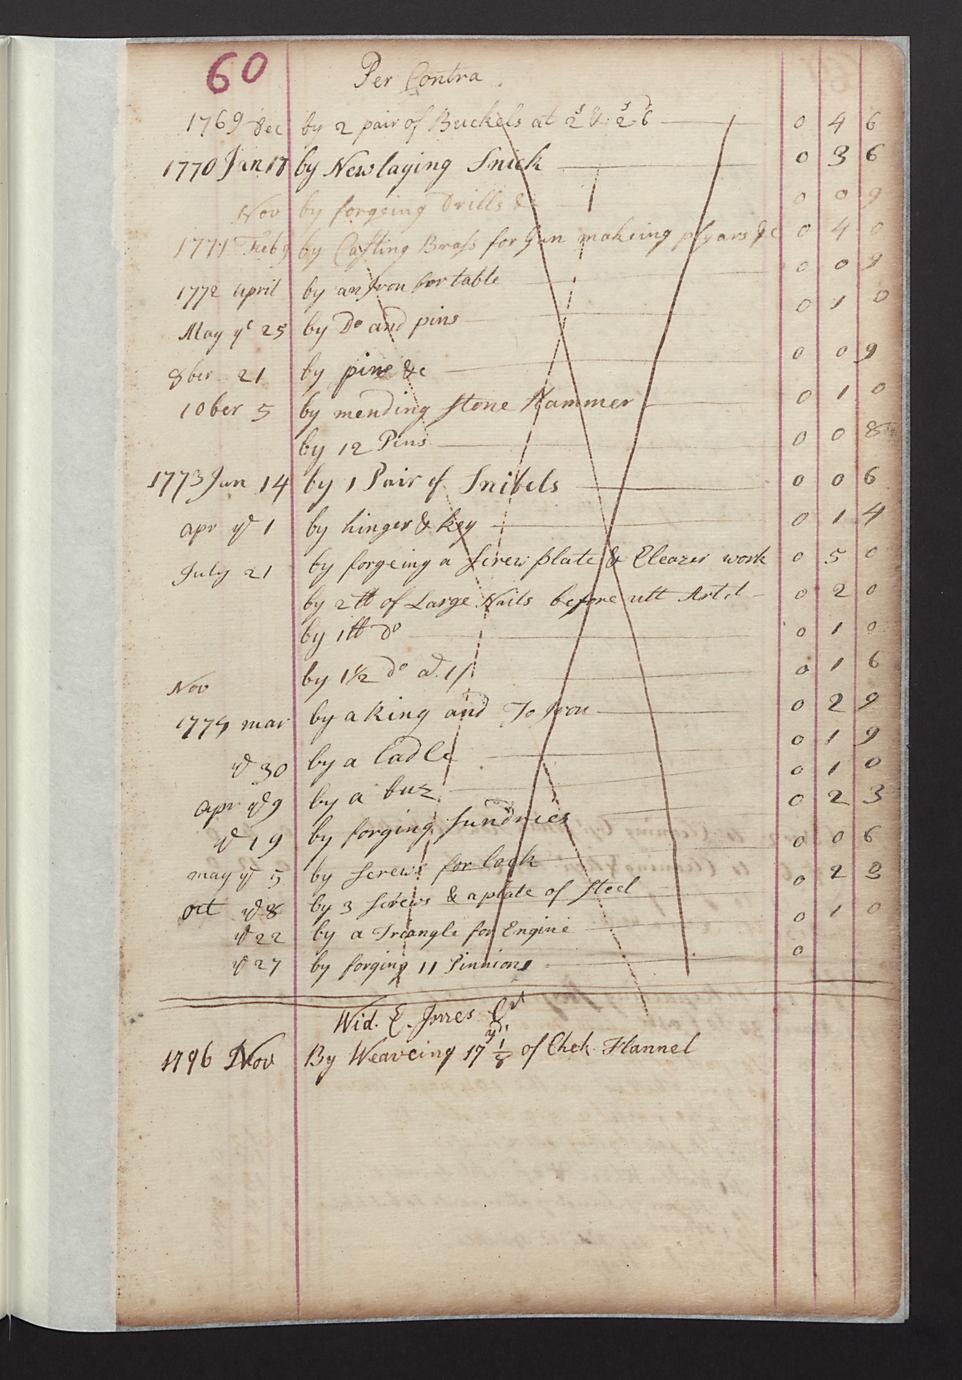 60 Per Contra
1769 Dec by 2 pair of Buckels at 2s & 2s 6d 0 4 6
1770 Jan 17 by New laying Snick 0 3 6
Nov by forgeing Drills & 0 0 9
1771 Feb 9 by Casting Brass for Gun makeing plyars &c 0 4 0
1772 april by an Iron for table 0 0 9
May ye 25 by Do and pins 0 1 0
8ber 21 by pins &c 0 0 9
10ber 5 by mending Stone Hammer 0 1 0
by 12 Pins 0 0 8
1773 Jan 14 by 1 Pair of Snibels 0 0 6
apr ye 1 by hinges & key 0 1 4
July 21 by forgeing a Screw plate & Eleazer work 0 5 0
by 2 tt of Large Nails before ult Artcl 0 2 0
by 1 tt do 0 1 0
by 1 1/2 do at 1/ 0 1 6
Nov
1774 mar by a king and To Iron 0 2 9
ye 30 by a Ladle 0 1 9
apr ye 9 by a buz 0 1 0
ye 19 by forging Sundries 0 2 3
may ye 5 by Screws for lock 0 0 6
oct ye 8 by 3 Screws & a plate of Steel 0 2 3
ye 22 by a Triangle for Engine 0 1 0
ye 27 by forging 11 Pinnions 0
Wid. E. Jones Cr
1796 Nov By Weaveing 17 yd 1/8 of Chek Flannel